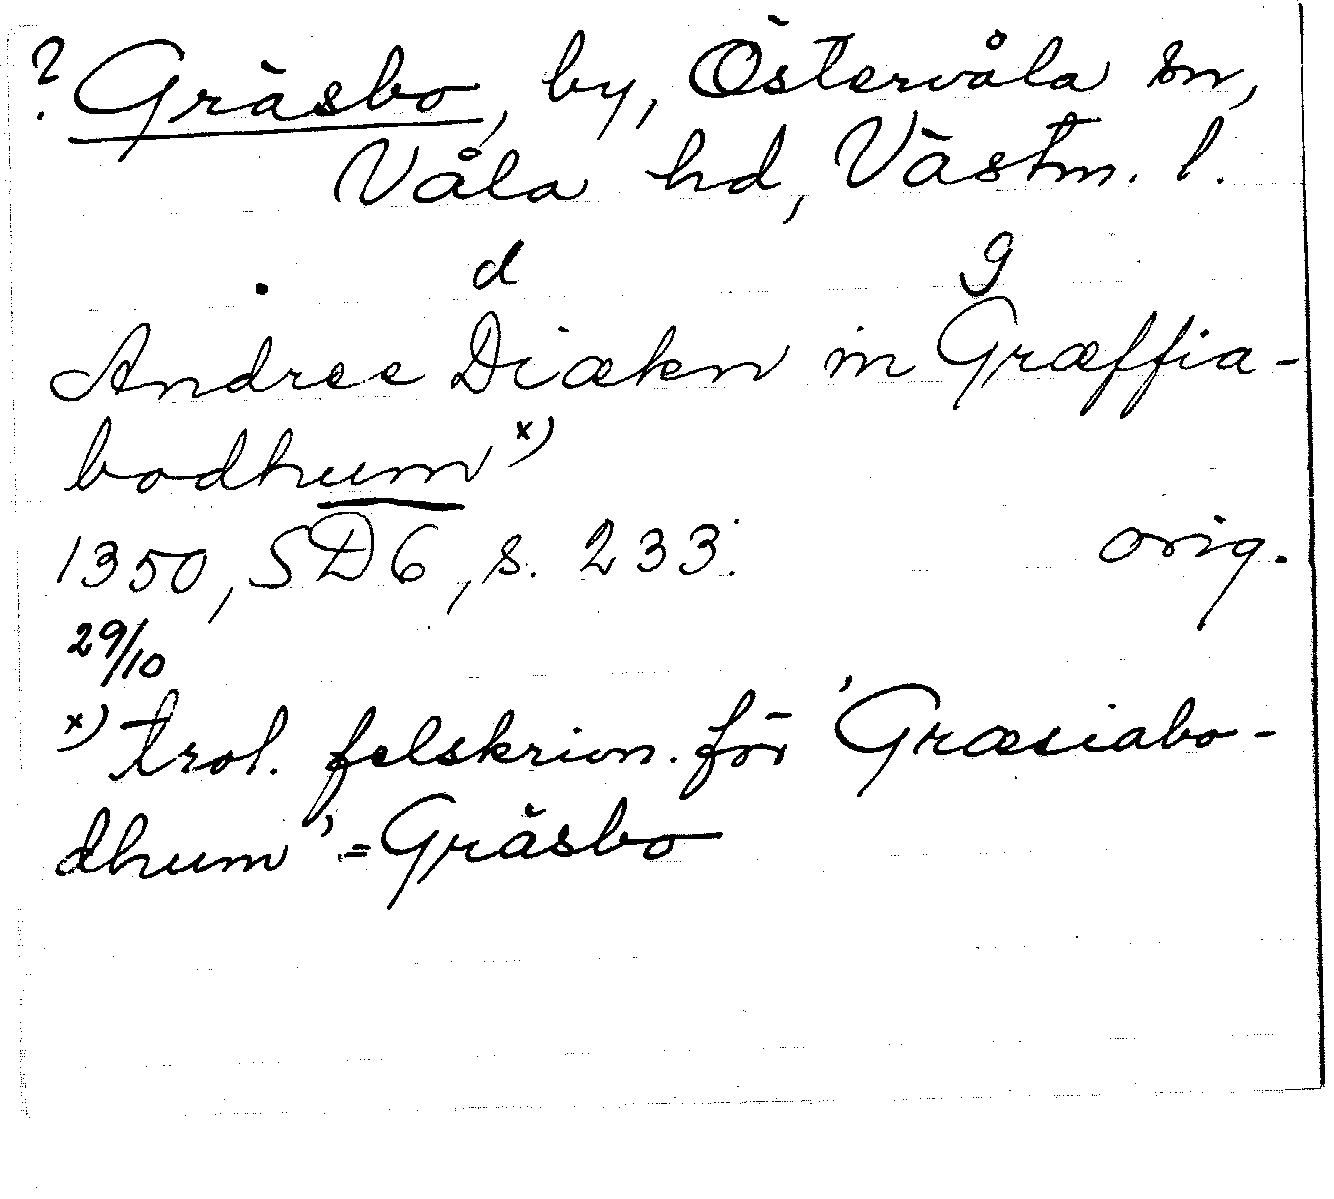 ? Gräsbo, by, Östervåla sn,
Våla hd, Västm. l.
d g
Andree Diækn in Græffia-
bodhum x)
1350, SD 6, s. 233. orig.
29/10
x) trol. felskrivn. för 'Græsiabo-
dhum' = Gräsbo